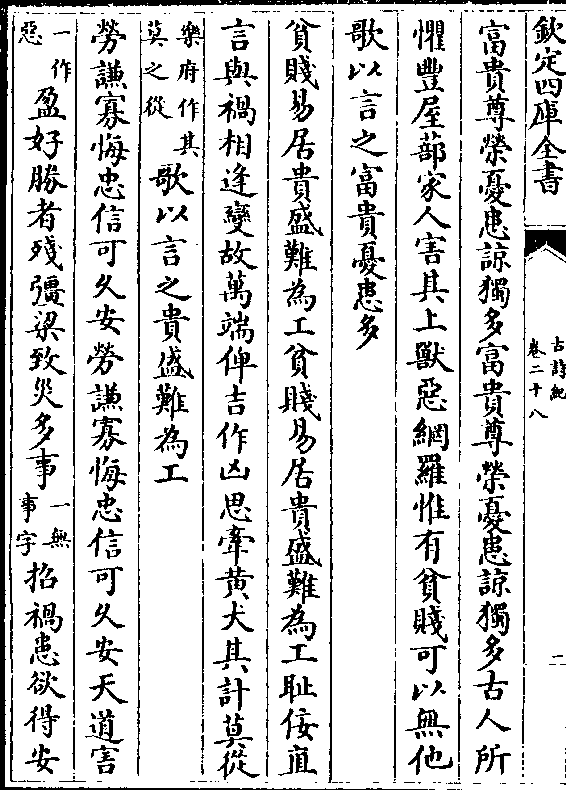 欽定四庫全書
古詩紀
卷二十八
二
富貴尊榮憂患諒獨多富貴尊榮憂患諒獨多古人所
懼豐屋蔀家人害其上獸惡網羅惟有貧賤可以無他
歌以言之富貴憂患多
貧賤易居貴盛難為工貧賤易居貴盛難為工耻佞直
言與禍相逢變故萬端俾吉作凶思牽黃犬其計莫從
樂府作其
莫之從
歌以言之貴盛難為工
勞謙寡悔忠信可久安勞謙寡悔忠信可久安天道害
一作
惡
盈好勝者殘彊梁致災多事
一無
事字
招禍患欲得安